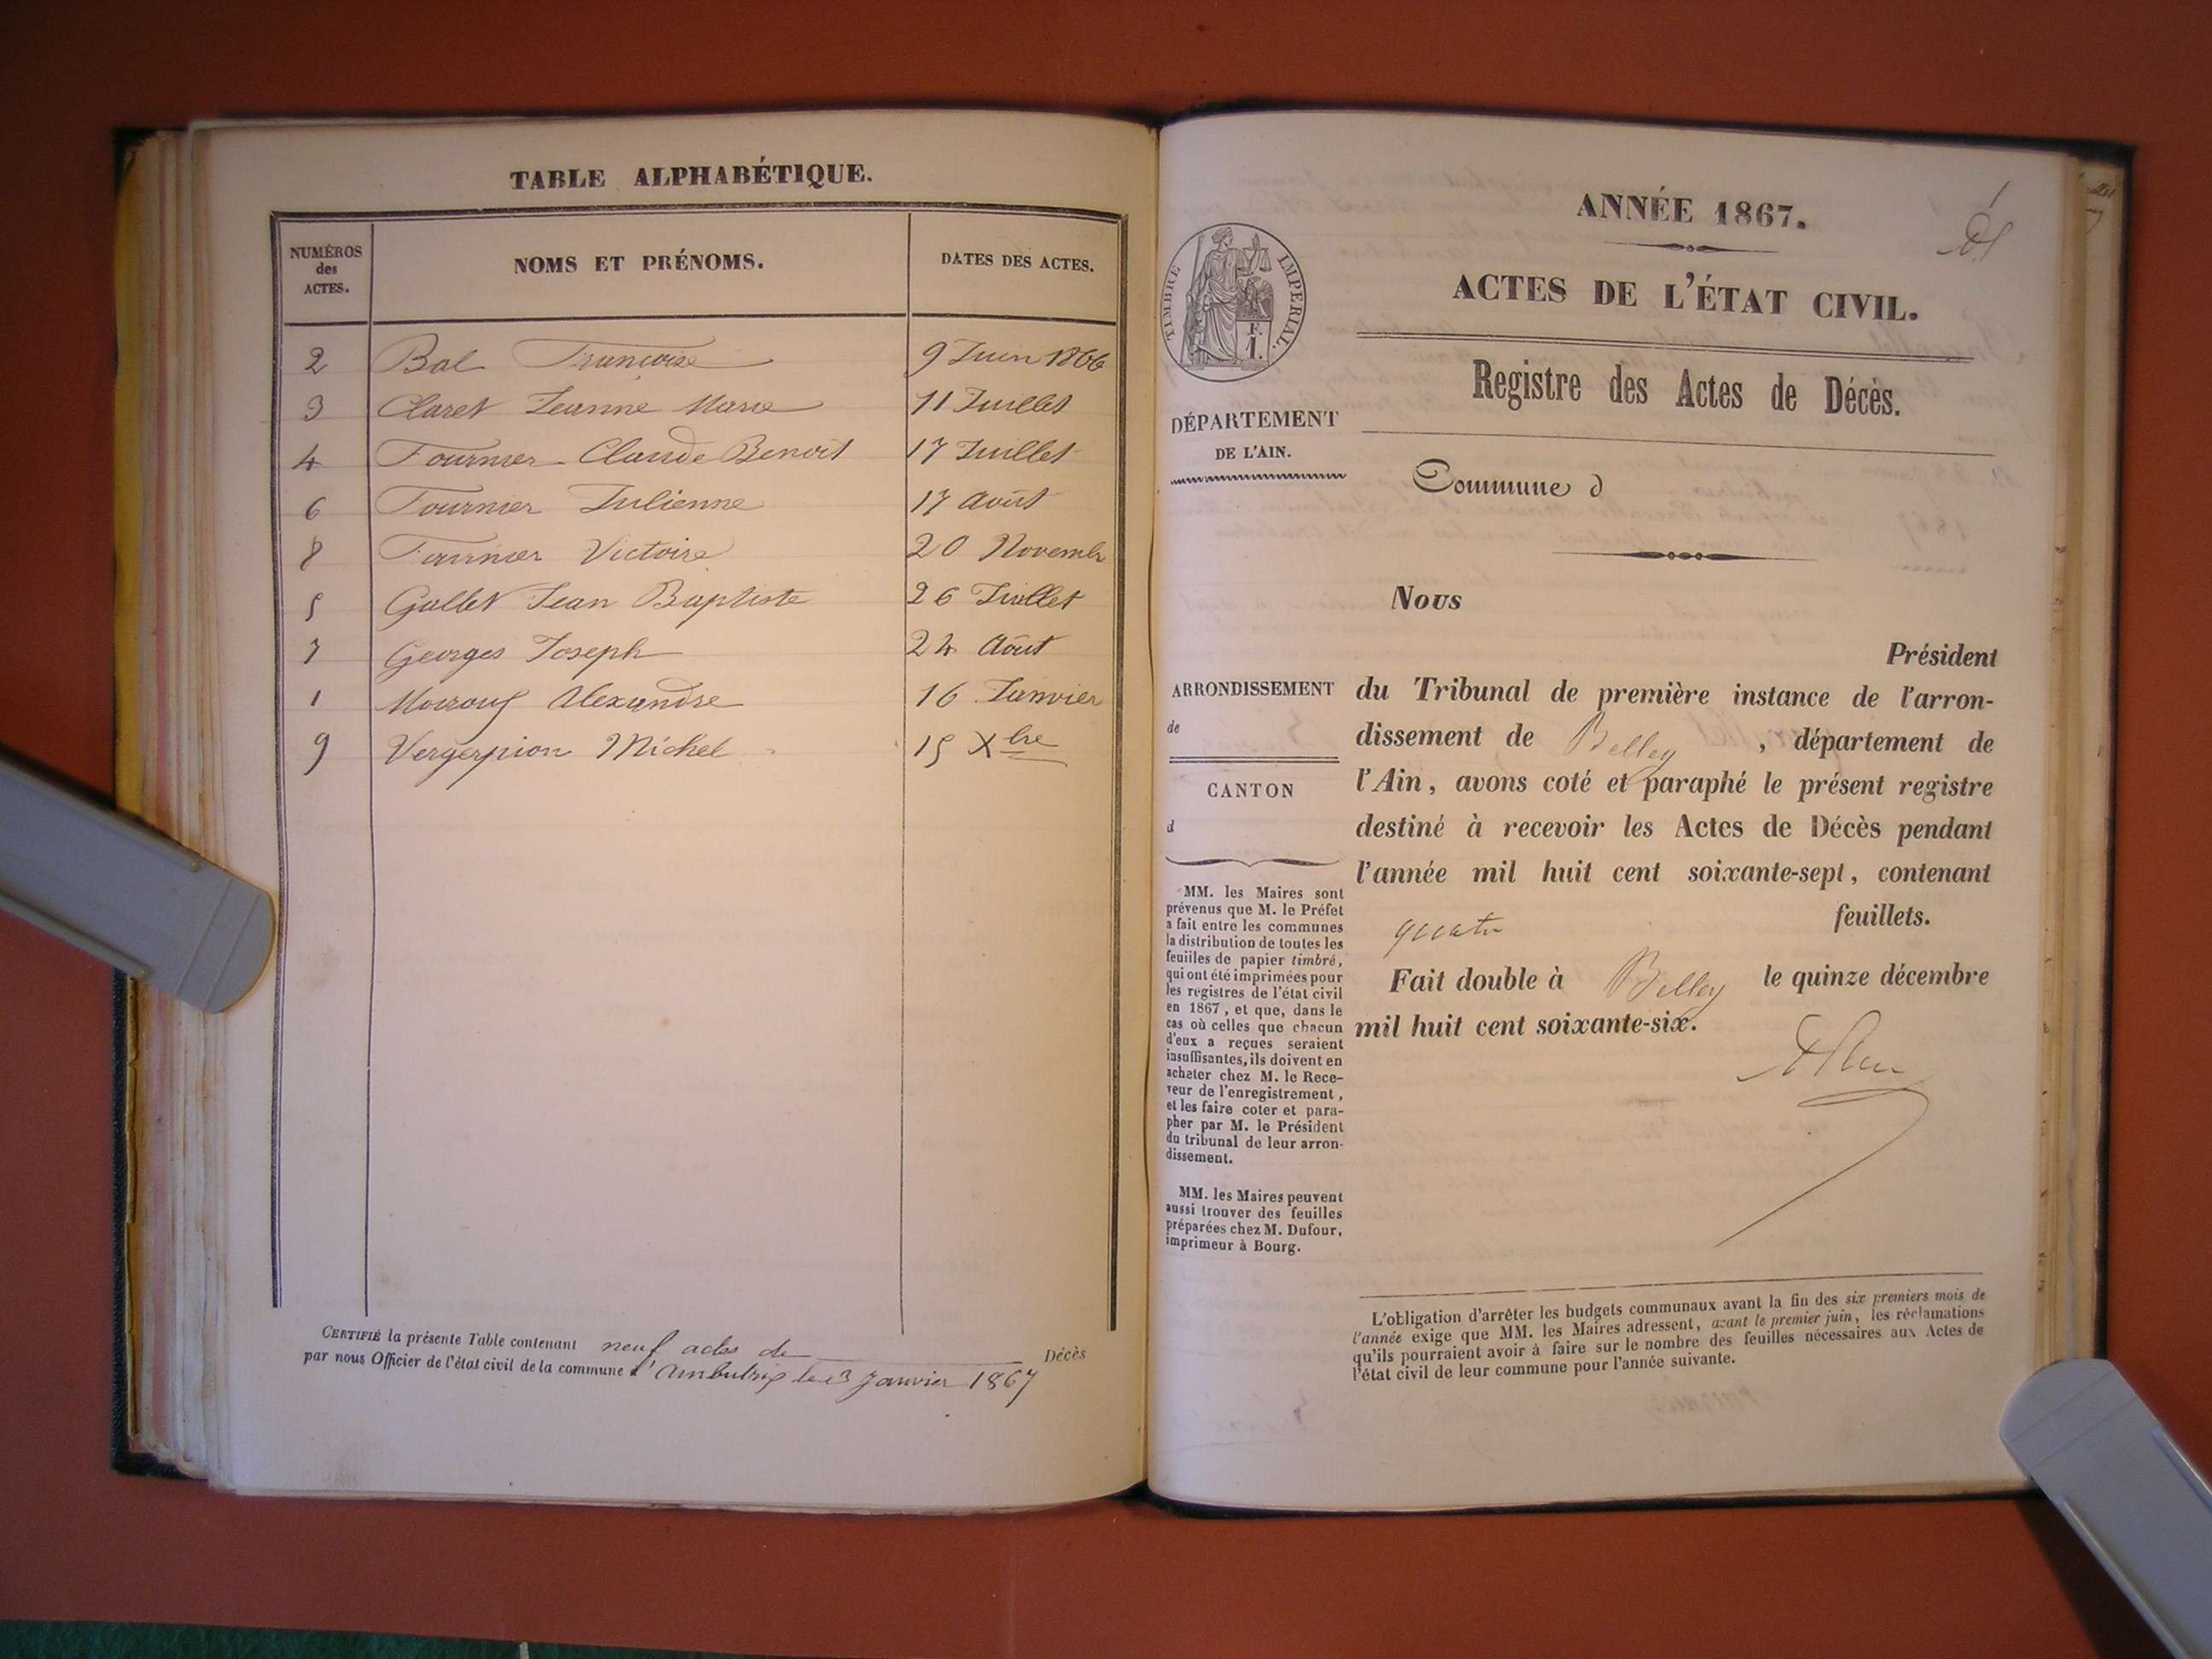 TABLE ALPHABÉTIQUE.
NUMÉROS
des
ACTES.
NOMS ET PRÉNOMS.
DATES DES ACTES.
2 Bal Françoise 9 Juin 1866
3 Claret Jeanne Marie 11 Juillet
4 Fournier Claude Benoit 17 Juillet
6 Fournier Julienne 17 Août
8 Fournier Victoire 20 Novembr
5 Gullet Jean Baptiste 26 Juillet
7 Georges Joseph 24 Août
1 Alexandre 16 Janvier
9 Vergerpion Michel 15 Xbre
CERTIFIÉ la présente Table contenant neuf actes de Décès
par nous Officier de l'état civil de la commune d'Ambutrix le 3 Janvier 1867
1
ANNÉE 1867.
ACTES DE L'ÉTAT CIVIL.
TIMBRE IMPERIAL.
F.
1.
Registre des Actes de Décès.
DÉPARTEMENT
DE L'AIN.
Commune d
Nous
Président
ARRONDISSEMENT
de
CANTON
d
du Tribunal de première instance de l'arron-
dissement de Belley, département de
l'Ain, avons coté et paraphé le présent registre
destiné à recevoir les Actes de Décès pendant
l'année mil huit cent soixante-sept, contenant
quatre feuillets.
Fait double à Belley le quinze décembre
mil huit cent soixante-six.
MM. les Maires sont
prévenus que M. le Préfet
a fait entre les communes
la distribution de toutes les
feuilles de papier timbré,
qui ont été imprimées pour
les registres de l'état civil
en 1867, et que, dans le
cas où celles que chacun
d'eux a reçues seraient
insuffisantes, ils doivent en
acheter chez M. le Rece-
veur de l'enregistrement,
et les faire coter et para-
pher par M. le Président
du tribunal de leur arron-
dissement.
MM. les Maires peuvent
aussi trouver des feuilles
préparées chez M. Dufour,
imprimeur à Bourg.
L'obligation d'arrêter les budgets communaux avant la fin des six premiers mois de
l'année exige que MM. les Maires adressent, avant le premier juin, les réclamations
qu'ils pourraient avoir à faire sur le nombre des feuilles nécessaires aux Actes de
l'état civil de leur commune pour l'année suivante.